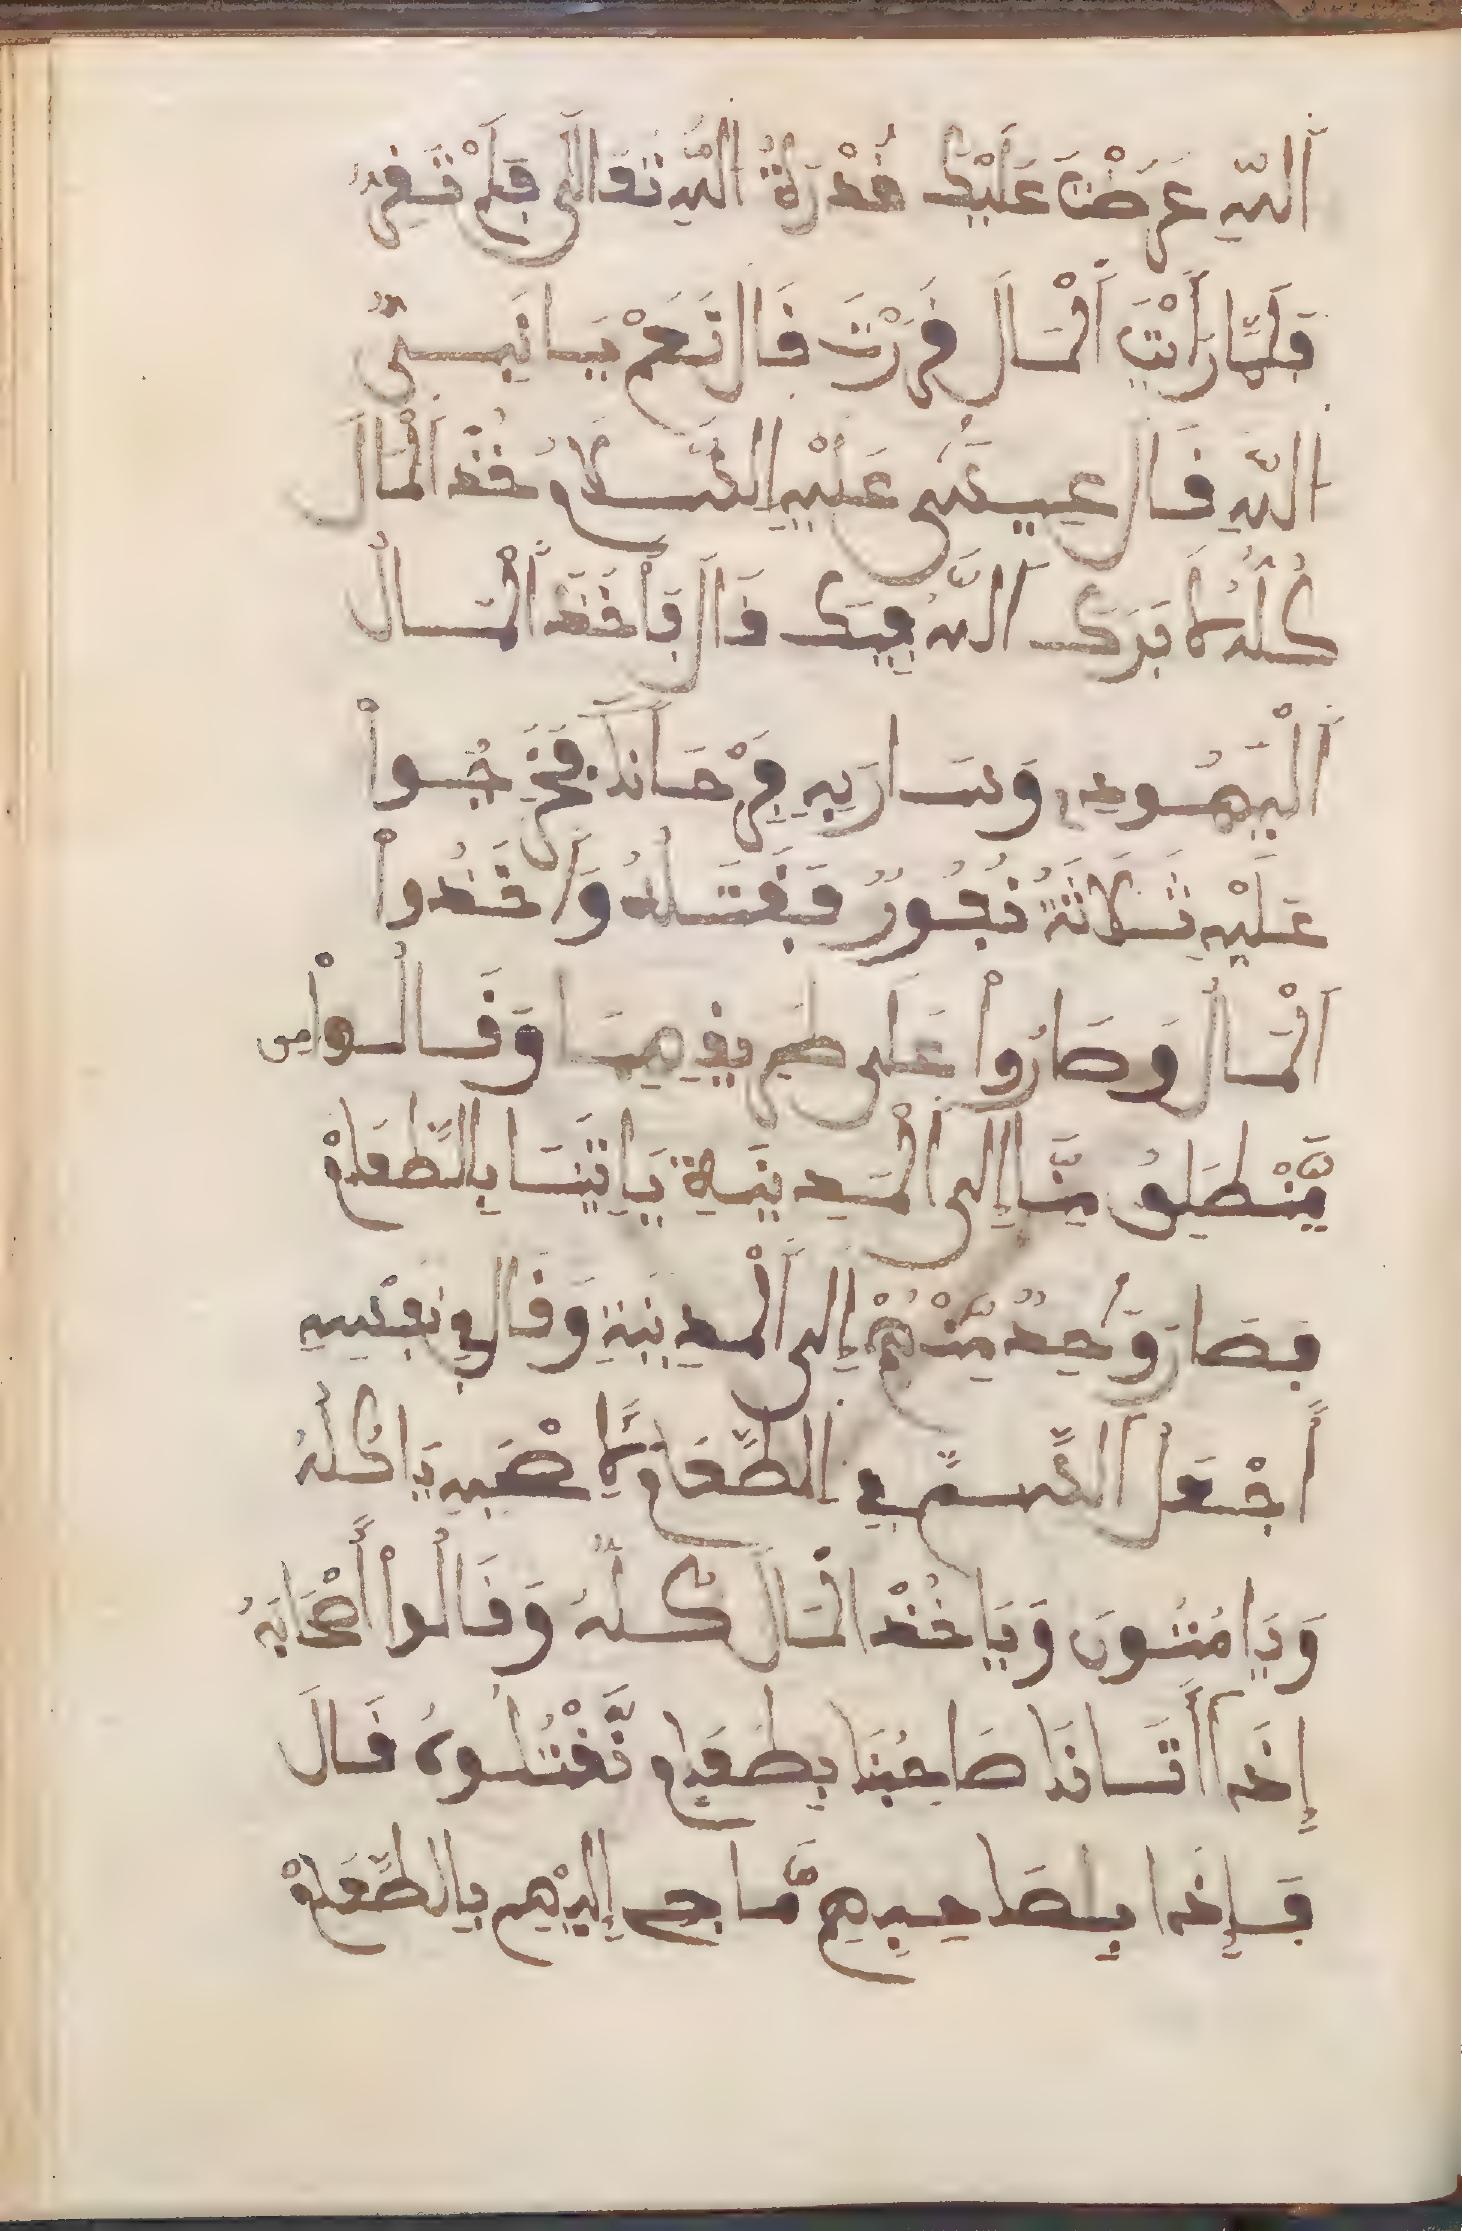 أَللَّهِ عَرَضْتُ عَلَيْكَ قُدْرَةُ اللَّهِ تَعَالَى فَلَمْ تَفِرَّ
فَلَمَّا رَأَيْتَ أَلْمَالَ فَرَرْتَ قَالَ نَعَمْ يَا نَبِيُّ
اللَّهِ قَالَ عِيسَى عَلَيْهِ السَّلَامُ خُذْ أَلْمَالَ
كُلُّهُ لَا بَرَكَ أَللَّهُ فِيكَ قَالَ فَأَخَذَ أَلْمَالُ
أَلْيَهُودِي وَسَارَ بِهِ فِرْحَانًا فَخَرَجُواْ
عَلَيْهِ ثَلَاثَةُ نُفُورٌ فَقَتَلُهُ وَأَخَذُواْ
أَلْمَالُ وَصَارُواْ عَلَى طَرِيقِهِمَا وَقَالُواْ مَن
يَّنْطَلِقُ مِنَّا إِلَى أَلْمَدِينَةِ يَاتِينَا بِالطَّعَامْ
فَصَارَ وَحِدٌ مِّنْهُمْ إِلَى أَلْمَدِينَةِ وَقَالَ فِي نَفْسِهِ
أَجْعَلُ أَلسَّمَّ فِي الطَّعَامِ لَأَصْحَبِهِ يَاكُلُهُ
وَيَامُتُونَ وَيَاخُذْ الْمَالَ كُلُّهُ وَقَالُواْ أَصْحَابَهُ
إِذَا أَتَانَا صَاحِبُنَا بِطَعَامِ نَّقْتُلُوهُ قَالَ
فَإِذَا بِصَاحِبِهِمْ مَّا جِي إِلَيْهِمْ بِالطَّعَامْ